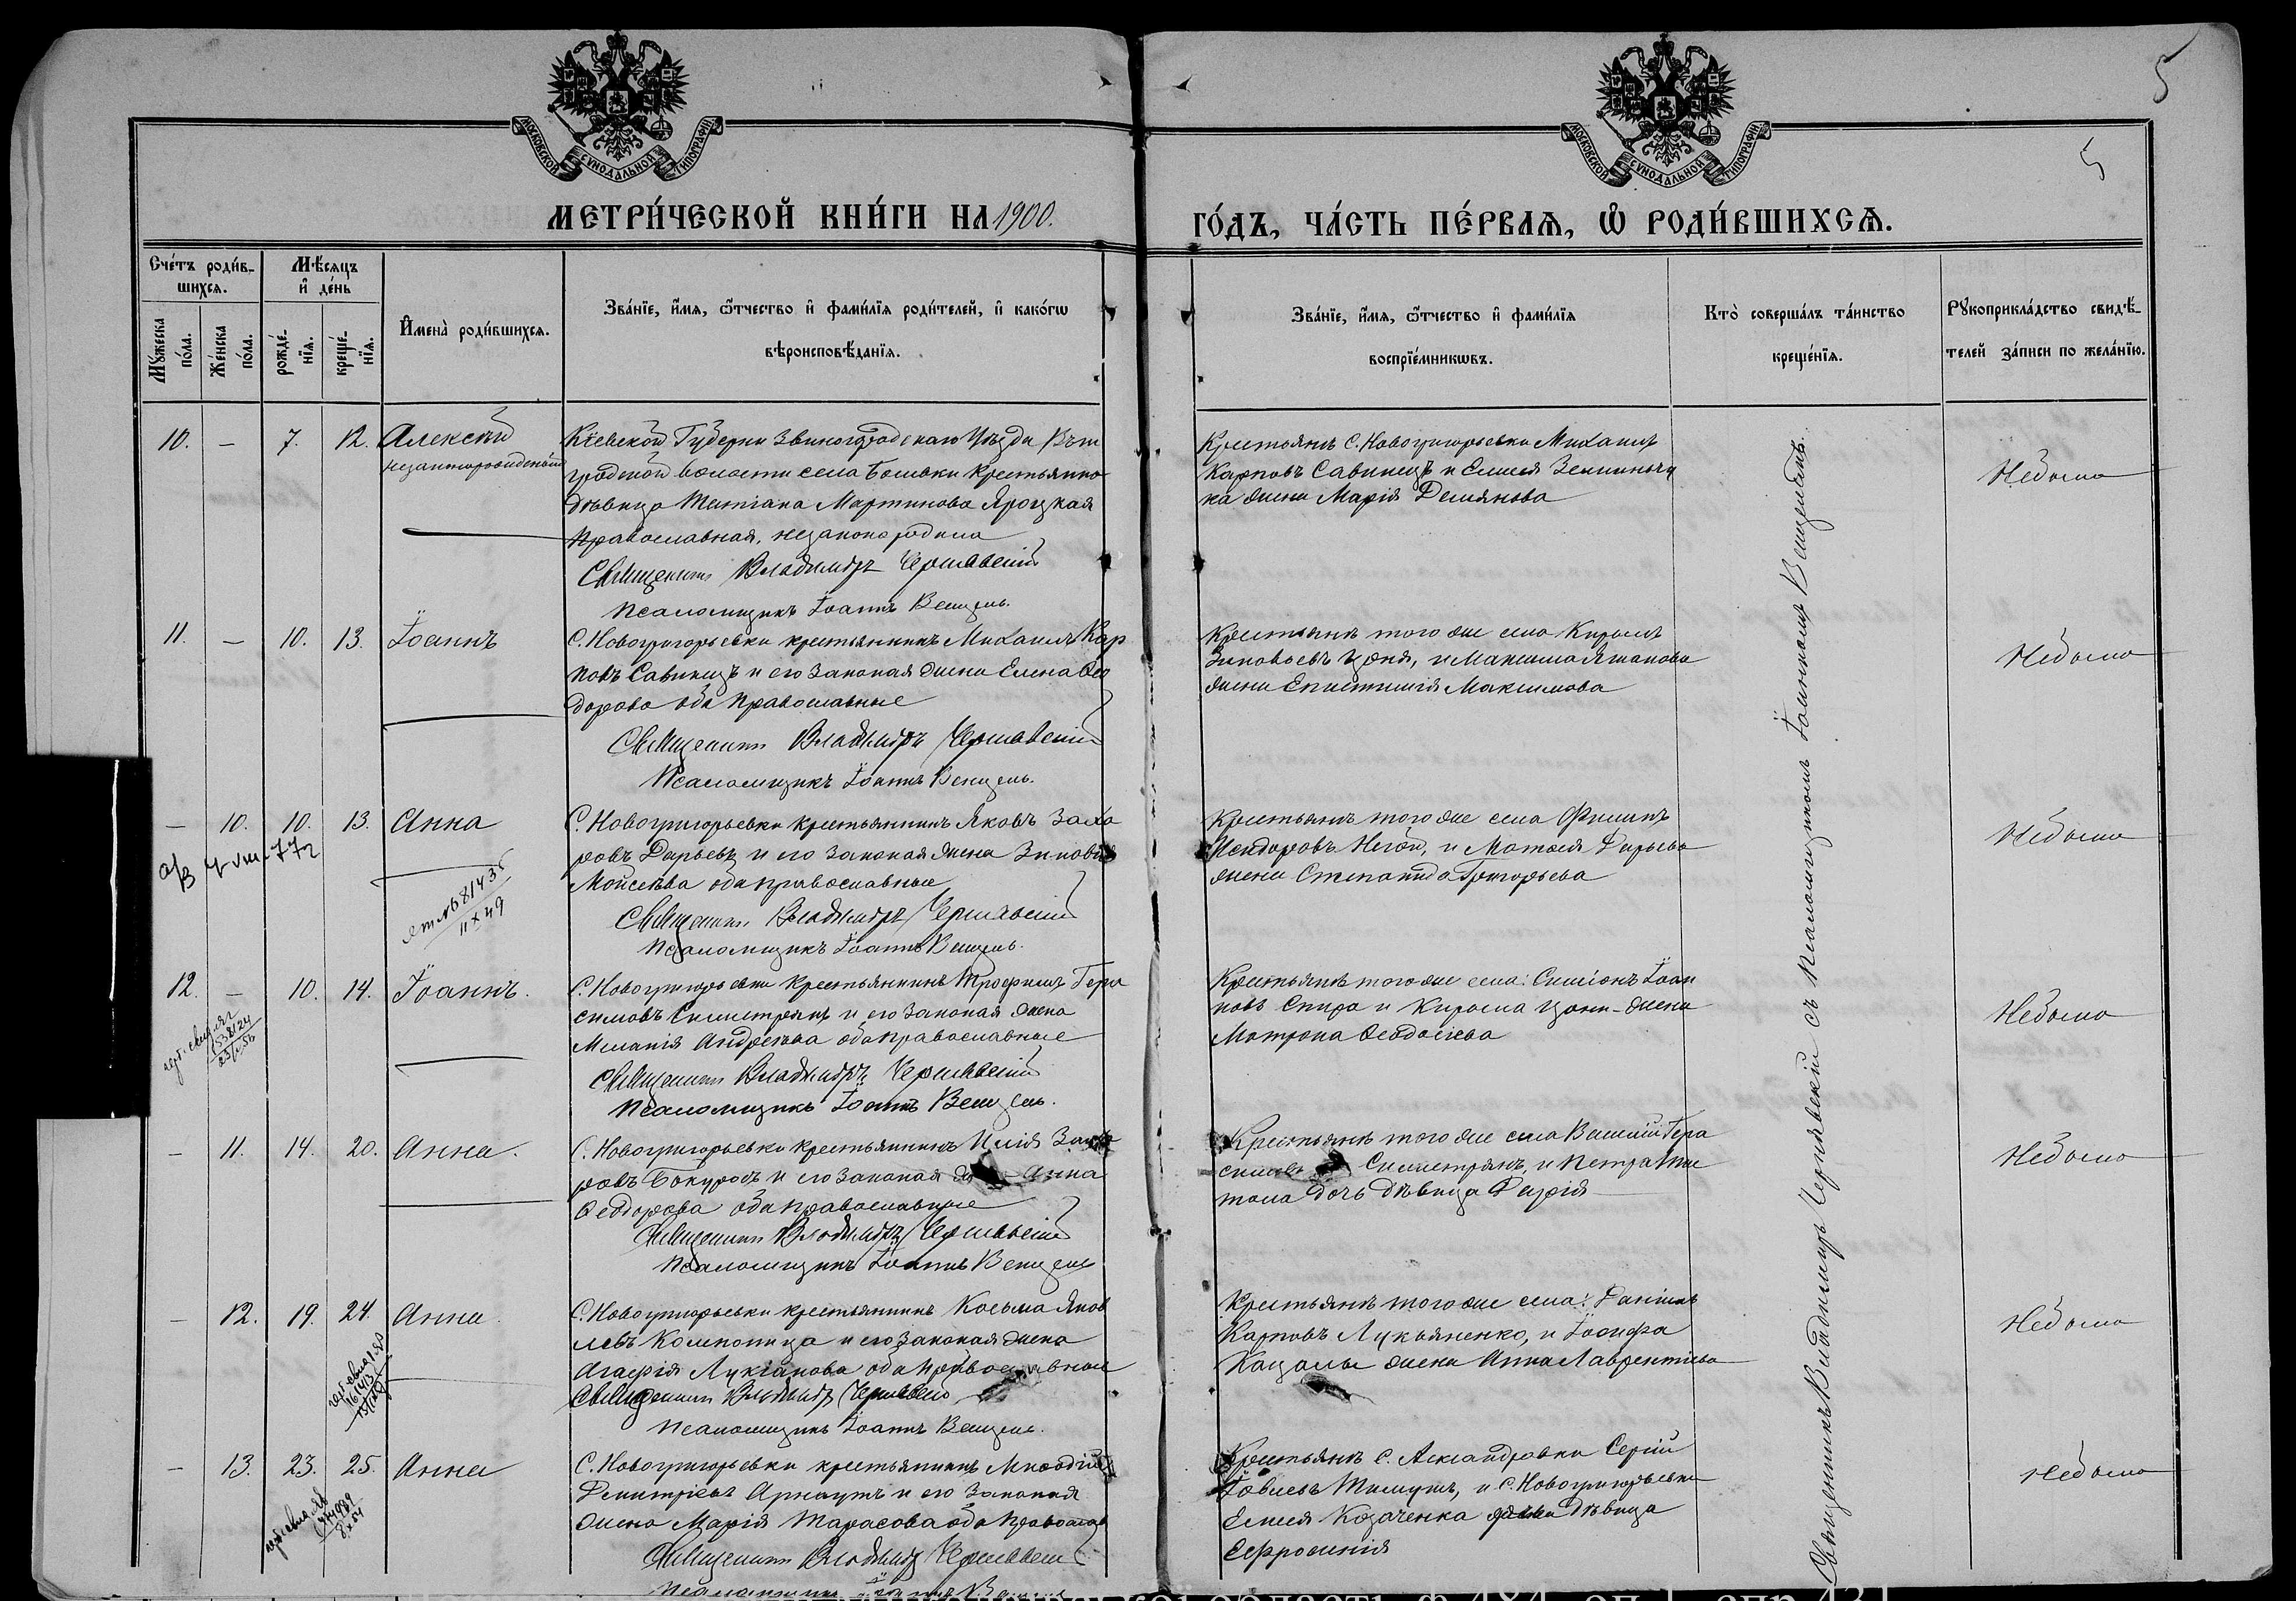 5
5
МОСКОВСКОЙ СУНОДАЛЬНОЙ ТИПОГРАФІИ
МОСКОВСКОЙ СУНОДАЛЬНОЙ ТИПОГРАФІИ
МЕТРИ́ЧЕСКОЙ КНИ́ГИ НА 1900.
ГО́ДЪ, ЧА́СТЬ ПЕ́РВАѦ, Ѡ҆ РОДИ́ВШИХСѦ.
Сче́тъ роди́в-
шихсѧ.
Мѣ́сѧцъ
и҆ де́нь
Мꙋ́жеска
по́ла.
Же́нска
по́ла.
рожде́-
нїѧ.
креще́-
нїѧ.
И҆мена̀ роди́вшихсѧ.
Зва́нїе, и҆́мѧ, ѻ҆́тчество и҆ фами́лїѧ роди́телей, и҆ како́гѡ
вѣроисповѣ́данїѧ.
Зва́нїе, и҆́мѧ, ѻ҆́тчество и҆ фами́лїѧ
воспрїе́мникѡвъ.
Кто̀ соверша́лъ та́инство
креще́нїѧ.
Рꙋкоприкла́дство свидѣ́-
телей за́писи по жела́нїю.
10. – 7. 12. Алексѣй
незаконнорожденный
Кіевской Губерни Звиногородскаго Уѣзда
гродской волости села крестьянка
дѣвица Татіана Мартинова Яроцкая
Православная, незаконородила
Священникъ Владиміръ Чернявскій
Псаломщикъ Іоаннъ Венцель.
Крестьянъ С. Новогригорьевки Михаилъ
Карповъ Савицкъ и Емилія
ка жена Марія Демянова
Небыло
11. – 10. 13. Іоаннъ
С. Новогригорьевки крестьянинъ Михаилъ Кар
повъ Савицкъ и его законая жена Елена Фео
дорова оба православные
Священникъ Владиміръ Чернявскій
Псаломщикъ Іоаннъ Венцель.
Крестьянъ того же села Кирилъ
Зиновьевъ Цоня, и Максима
жена Епистимія Максимова
Небыло
– 10. 10. 13. Анна
С. Новогригорьевки крестьянинъ Яковъ Заха
ровъ Дарьевъ и его законая жена Зиновія
Мойсеева оба православные
Священникъ Владиміръ Чернявскій
Псаломщикъ Іоаннъ Венцель.
Крестьянъ того же села Филипъ
Исидоровъ Негой, и Матвея Дарьева
жена Степанида Григорьева
Небыло
12. – 10. 14. Іоаннъ.
С. Новогригорьевки крестьянинъ Трофимъ Гера
симовъ Силистрянъ и его законая жена
Меланія Андреева оба православные
Священникъ Владиміръ Чернявскій
Псаломщикъ Іоаннъ Венцель.
Крестьянъ того же села: Симіонъ Іоан
новъ Спира и Кирила Цони – жена
Матрона Феодосіева
Небыло
– 11. 14. 20. Анна.
С. Новогригорьевки крестьянинъ Илія Заха
ровъ и его законая Анна
Феодорова оба православные
Священникъ Владиміръ Чернявскій
Псаломщикъ Іоаннъ Венцель
Крестьянъ того же села Василій Гера
симовъ Силистрянъ, и Петра
дочь дѣвица Дарія
Небыло
– 12. 19. 24. Анна.
С. Новогригорьевки крестьянинъ Косьма Яков
левъ и его законая жена
Агафія Лукіанова оба православные
Священникъ Владиміръ Чернявскій
Псаломщикъ Іоаннъ Венцель.
Крестьянъ того же села: Даніилъ
Карповъ Лукьяненко, и Іосифа
Кацалы жена Анна Лаврентіева
Небыло
– 13. 23. 25. Анна
С. Новогригорьевки крестьянинъ Мефодій
Димитріевъ Арнаутъ и его законая
жена Марія Тарасова оба православ
Священникъ Владиміръ Чернявскій
Крестьянъ С. Александровки Сергій
и С. Новогригорьевки
Емилія Козаченка дѣвица
Евфросинія
Небыло
Священникъ Владиміръ Чернявскій съ псаломщикомъ Іоанномъ Венцелемъ.